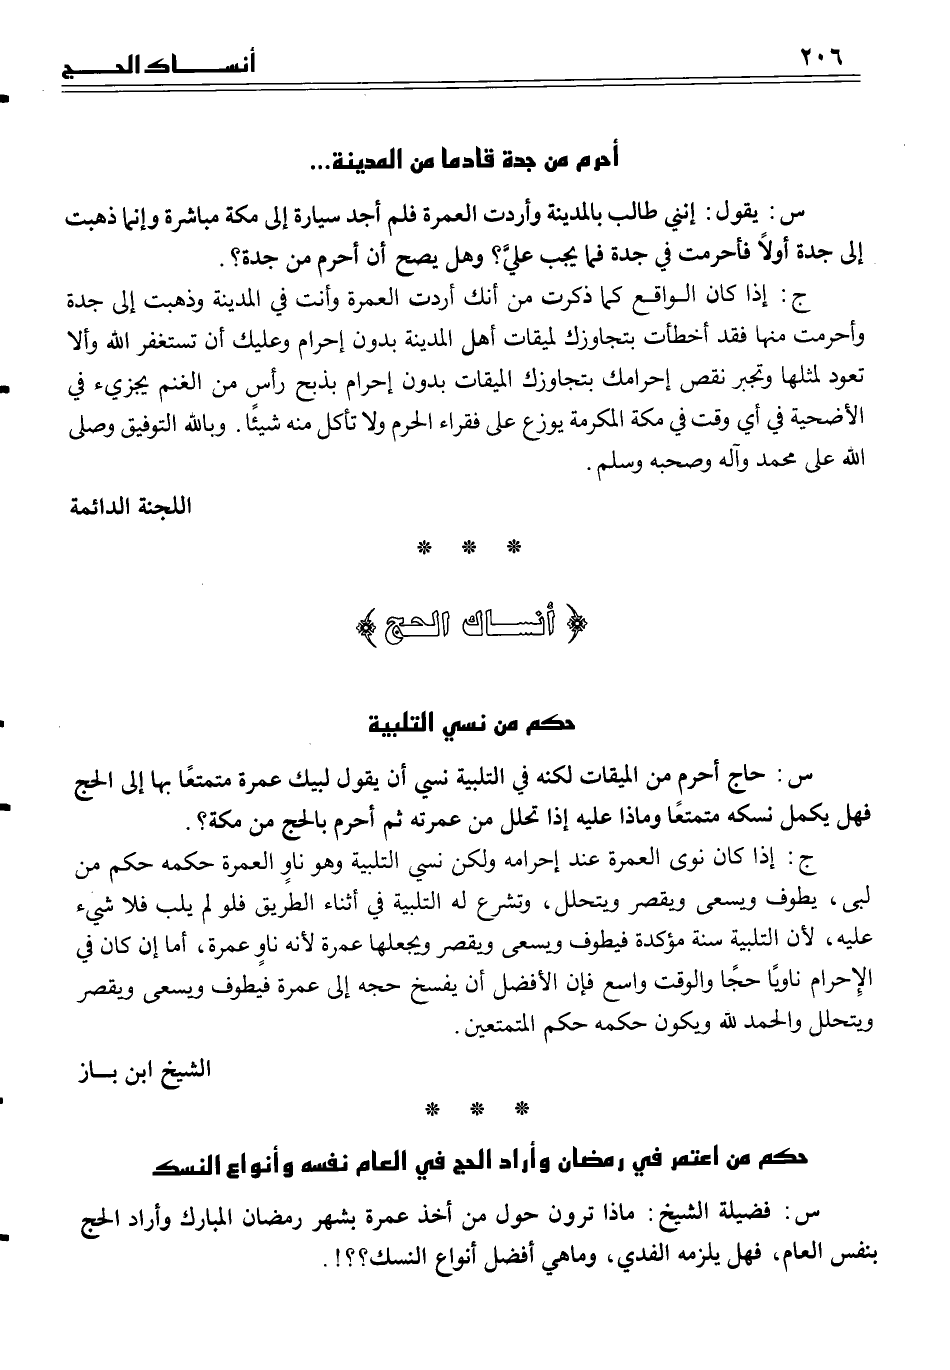 ٢٠٦
أنســاك الحــج
أحرم من جدة قادما من المدينة...
س: يقول: إنني طالب بالمدينة وأردت العمرة فلم أجد سيارة إلى مكة مباشرة وإنما ذهبت
إلى جدة أولاً فأحرمت في جدة فما يجب عليَّ؟ وهل يصح أن أحرم من جدة؟.
ج: إذا كان الـواقـع كما ذكرت من أنك أردت العمرة وأنت في المدينة وذهبت إلى جدة
وأحرمت منها فقد أخطأت بتجاوزك لميقات أهل المدينة بدون إحرام وعليك أن تستغفر الله وألا
تعود لمثلها وتجبر نقص إحرامك بتجاوزك الميقات بدون إحرام بذبح رأس من الغنم يجزيء في
الأضحية في أي وقت في مكة المكرمة يوزع على فقراء الحرم ولا تأكل منه شيئًا. وبالله التوفيق وصلى
الله على محمد وآله وصحبه وسلم.
اللجنة الدائمة
* * *
﴿أنســاك الحج﴾
حكم من نسي التلبية
س: حاج أحرم من الميقات لكنه في التلبية نسي أن يقول لبيك عمرة متمتعًا بها إلى الحج
فهل يكمل نسكه متمتعًا وماذا عليه إذا تحلل من عمرته ثم أحرم بالحج من مكة؟.
ج: إذا كان نوى العمرة عند إحرامه ولكن نسي التلبية وهو ناوٍ العمرة حكمه حكم من
لبى، يطوف ويسعى ويقصر ويتحلل، وتشرع له التلبية في أثناء الطريق فلو لم يلب فلا شيء
عليه، لأن التلبية سنة مؤكدة فيطوف ويسعى ويقصر ويجعلها عمرة لأنه ناوٍ عمرة، أما إن كان في
الإحرام ناويًا حجًا والوقت واسع فإن الأفضل أن يفسخ حجه إلى عمرة فيطوف ويسعى ويقصر
ويتحلل والحمد لله ويكون حكمه حكم المتمتعين.
الشيخ ابن بـــاز
* * *
حكم من اعتمر في رمضان وأراد الحج في العام نفسه وأنواع النسك
س: فضيلة الشيخ: ماذا ترون حول من أخذ عمرة بشهر رمضان المبارك وأراد الحج
بنفس العام، فهل يلزمه الفدي، وماهي أفضل أنواع النسك؟؟!.